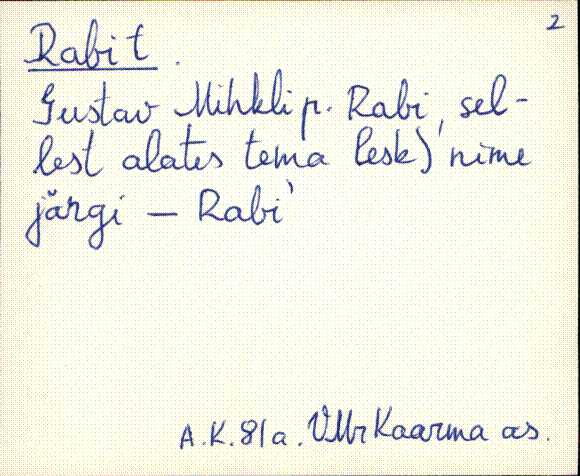 2
Rabit.
Gustav Mihkli p. Rabi, sel-
lest alates tema lesk) nime
järgi — Rabi
A.K. 81a. VMr Kaarma as.